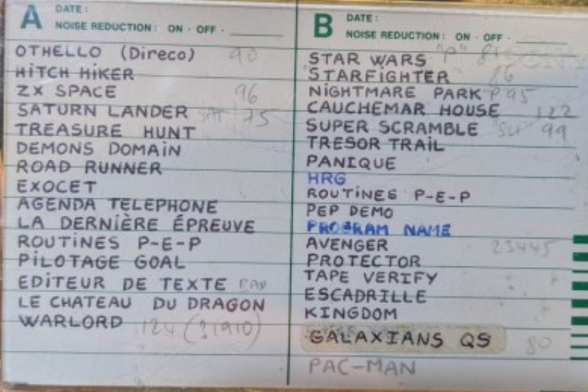 A DATE:
NOISE REDUCTION: ON · OFF ·
OTHELLO (Direco) 90
HITCH HIKER
ZX SPACE 96
SATURN LANDER 75
TREASURE HUNT
DEMONS DOMAIN
ROAD RUNNER
EXOCET
AGENDA TELEPHONE
LA DERNIÈRE ÉPREUVE
ROUTINES P-E-P
PILOTAGE GOAL
EDITEUR DE TEXTE
LE CHATEAU DU DRAGON
WARLORD 124
B DATE:
NOISE REDUCTION: ON · OFF ·
STAR WARS "P"
STARFIGHTER 86
NIGHTMARE PARK "P" 95
CAUCHEMAR HOUSE 122
SUPER SCRAMBLE 99
TRESOR TRAIL
PANIQUE
HRG
ROUTINES P-E-P
PEP DEMO
PROGRAM NAME
AVENGER 23445
PROTECTOR
TAPE VERIFY
ESCADRILLE
KINGDOM
GALAXIANS QS 80
PAC-MAN